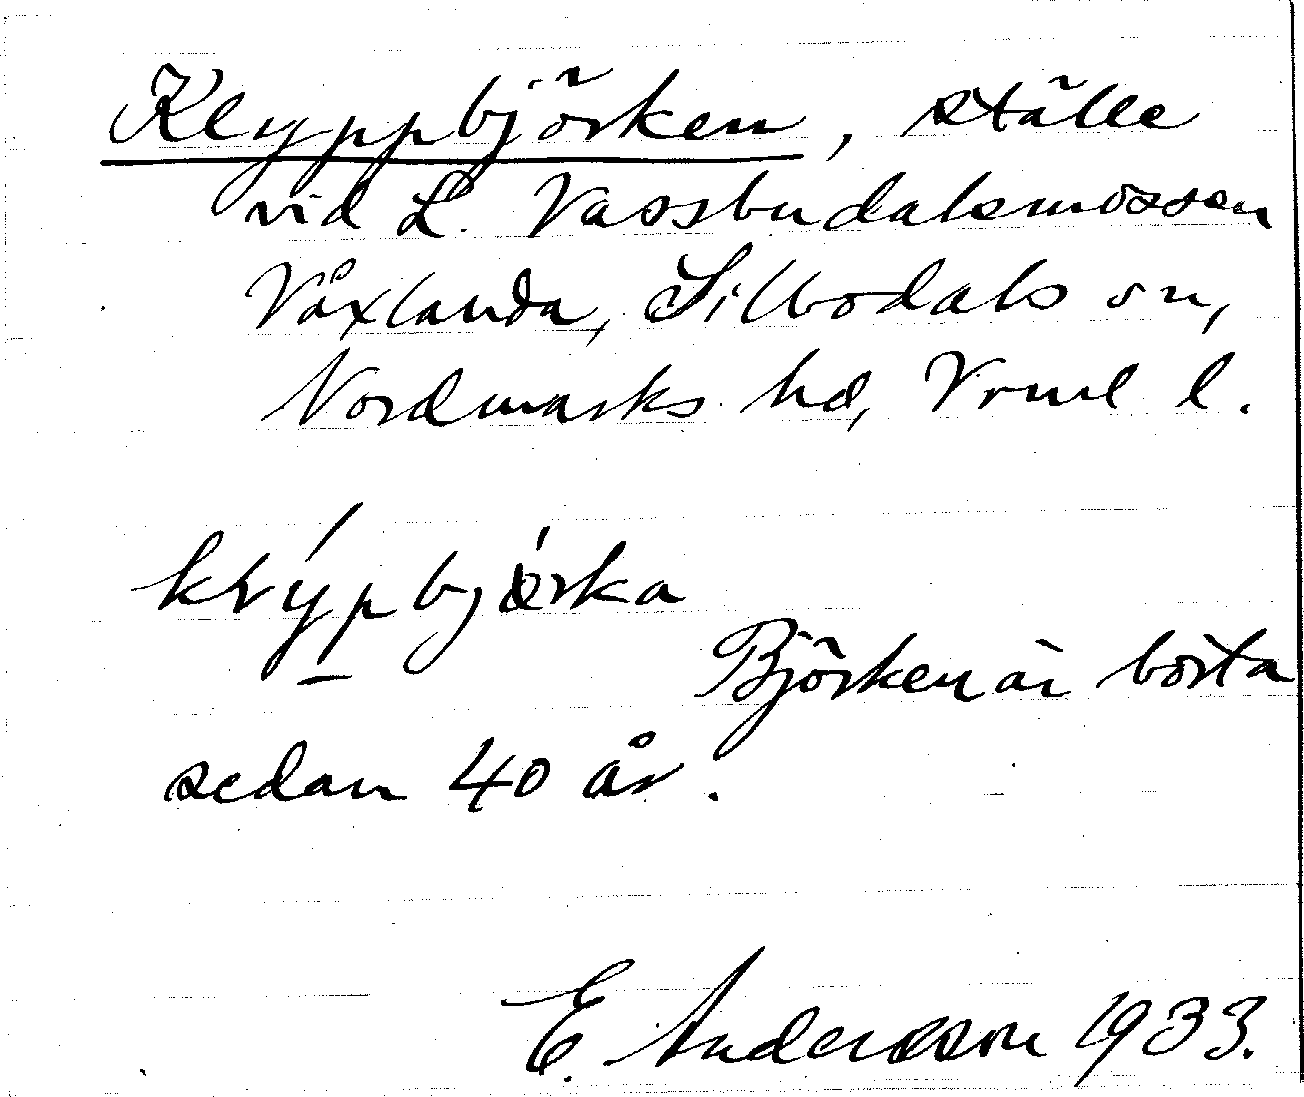 Klyppbjörken, ställe
vid L. Vassbudalsmossen
Våxlanda, Silbodals sn,
Nordmarks hd, Vrml l.
Björken är borta
sedan 40 år.
E. Andersson 1933.